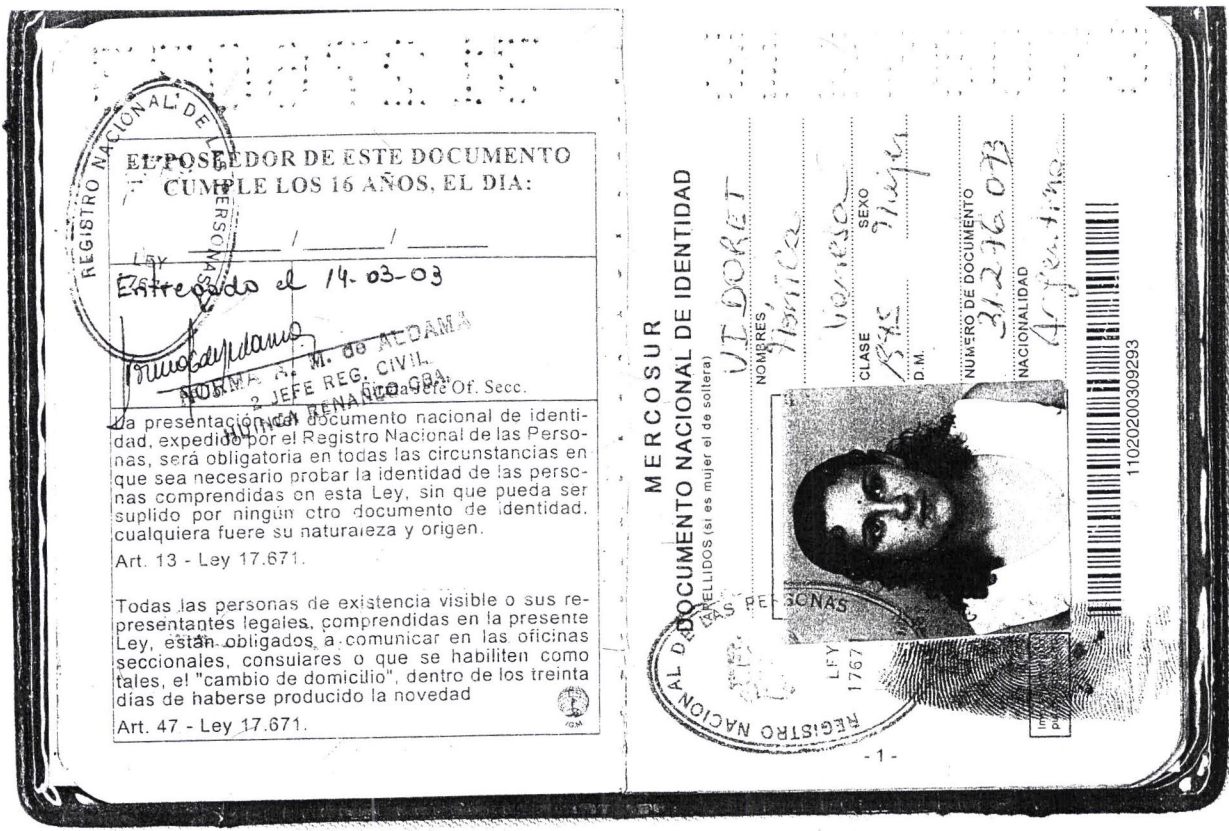 REGISTRO NACIONAL DE LAS PERSONAS
LEY
EL POSEEDOR DE ESTE DOCUMENTO
CUMPLE LOS 16 AÑOS, EL DIA:
/ /
Entregado el 14-03-03
NORMA A. M. de ALDAMA
2 JEFE REG. CIVIL
HUINCA RENANCO-CBA.
Jefe Of. Secc.
La presentación del documento nacional de identi-
dad, expedido por el Registro Nacional de las Perso-
nas, será obligatoria en todas las circunstancias en
que sea necesario probar la identidad de las perso-
nas comprendidas en esta Ley, sin que pueda ser
suplido por ningún otro documento de identidad,
cualquiera fuere su naturaleza y origen.
Art. 13 - Ley 17.671.
Todas las personas de existencia visible o sus re-
presentantes legales, comprendidas en la presente
Ley, están obligados a comunicar en las oficinas
seccionales, consulares o que se habiliten como
tales, el "cambio de domicilio", dentro de los treinta
días de haberse producido la novedad
Art. 47 - Ley 17.671.
IGM
MERCOSUR
DOCUMENTO NACIONAL DE IDENTIDAD
APELLIDOS (si es mujer el de soltera)
VIDORET
NOMBRES
Mónica
Vanesa
CLASE SEXO
Mujer
D.M.
NUMERO DE DOCUMENTO
31.276.073
NACIONALIDAD
Argentina
110202003092​93
REGISTRO NACIONAL DE LAS PERSONAS
LEY
1767
- 1 -